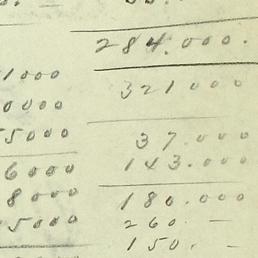 284.000.
1000
321000
0000
5000
37.000
6000
143.000
8000
180.000
5000
260. —
150. —